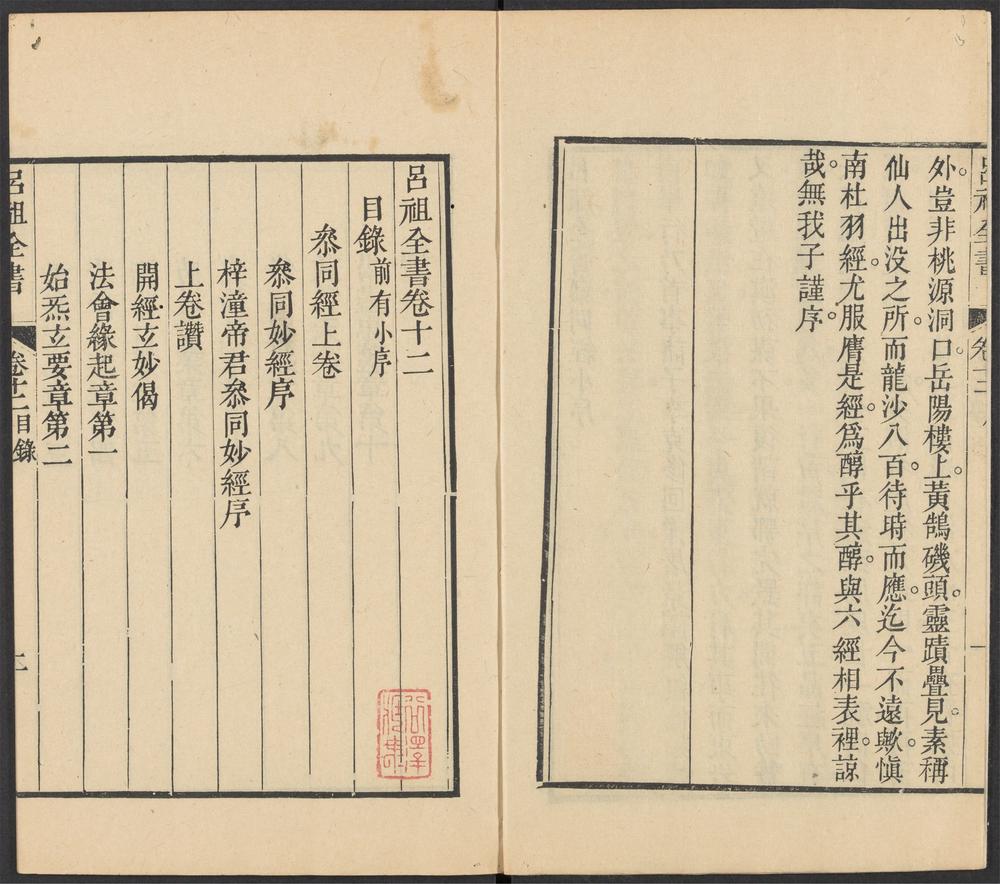 呂祖全書 卷十二
外豈非桃源洞口岳陽樓上黃鵠磯頭靈蹟疊見素稱
仙人出没之所而龍沙八百待時而應迄今不遠歟愼
南杜羽經尤服膺是經爲醇乎其醇與六經相表裡諒
哉無我子謹序
呂祖全書卷十二
目錄前有小序
叅同經上卷
叅同妙經序
梓潼帝君叅同妙經序
上卷讚
開經玄妙偈
法會緣起章第一
始炁玄要章第二
呂祖全書 卷十二目錄